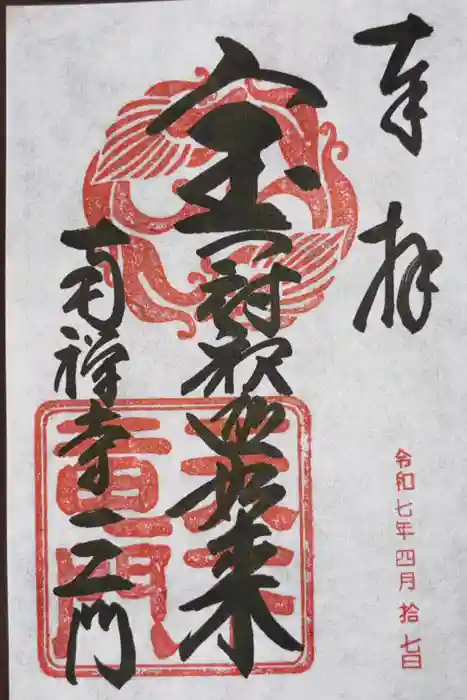 奉拝
宝冠釈迦如来
南禅寺三門
令和七年四月拾七日